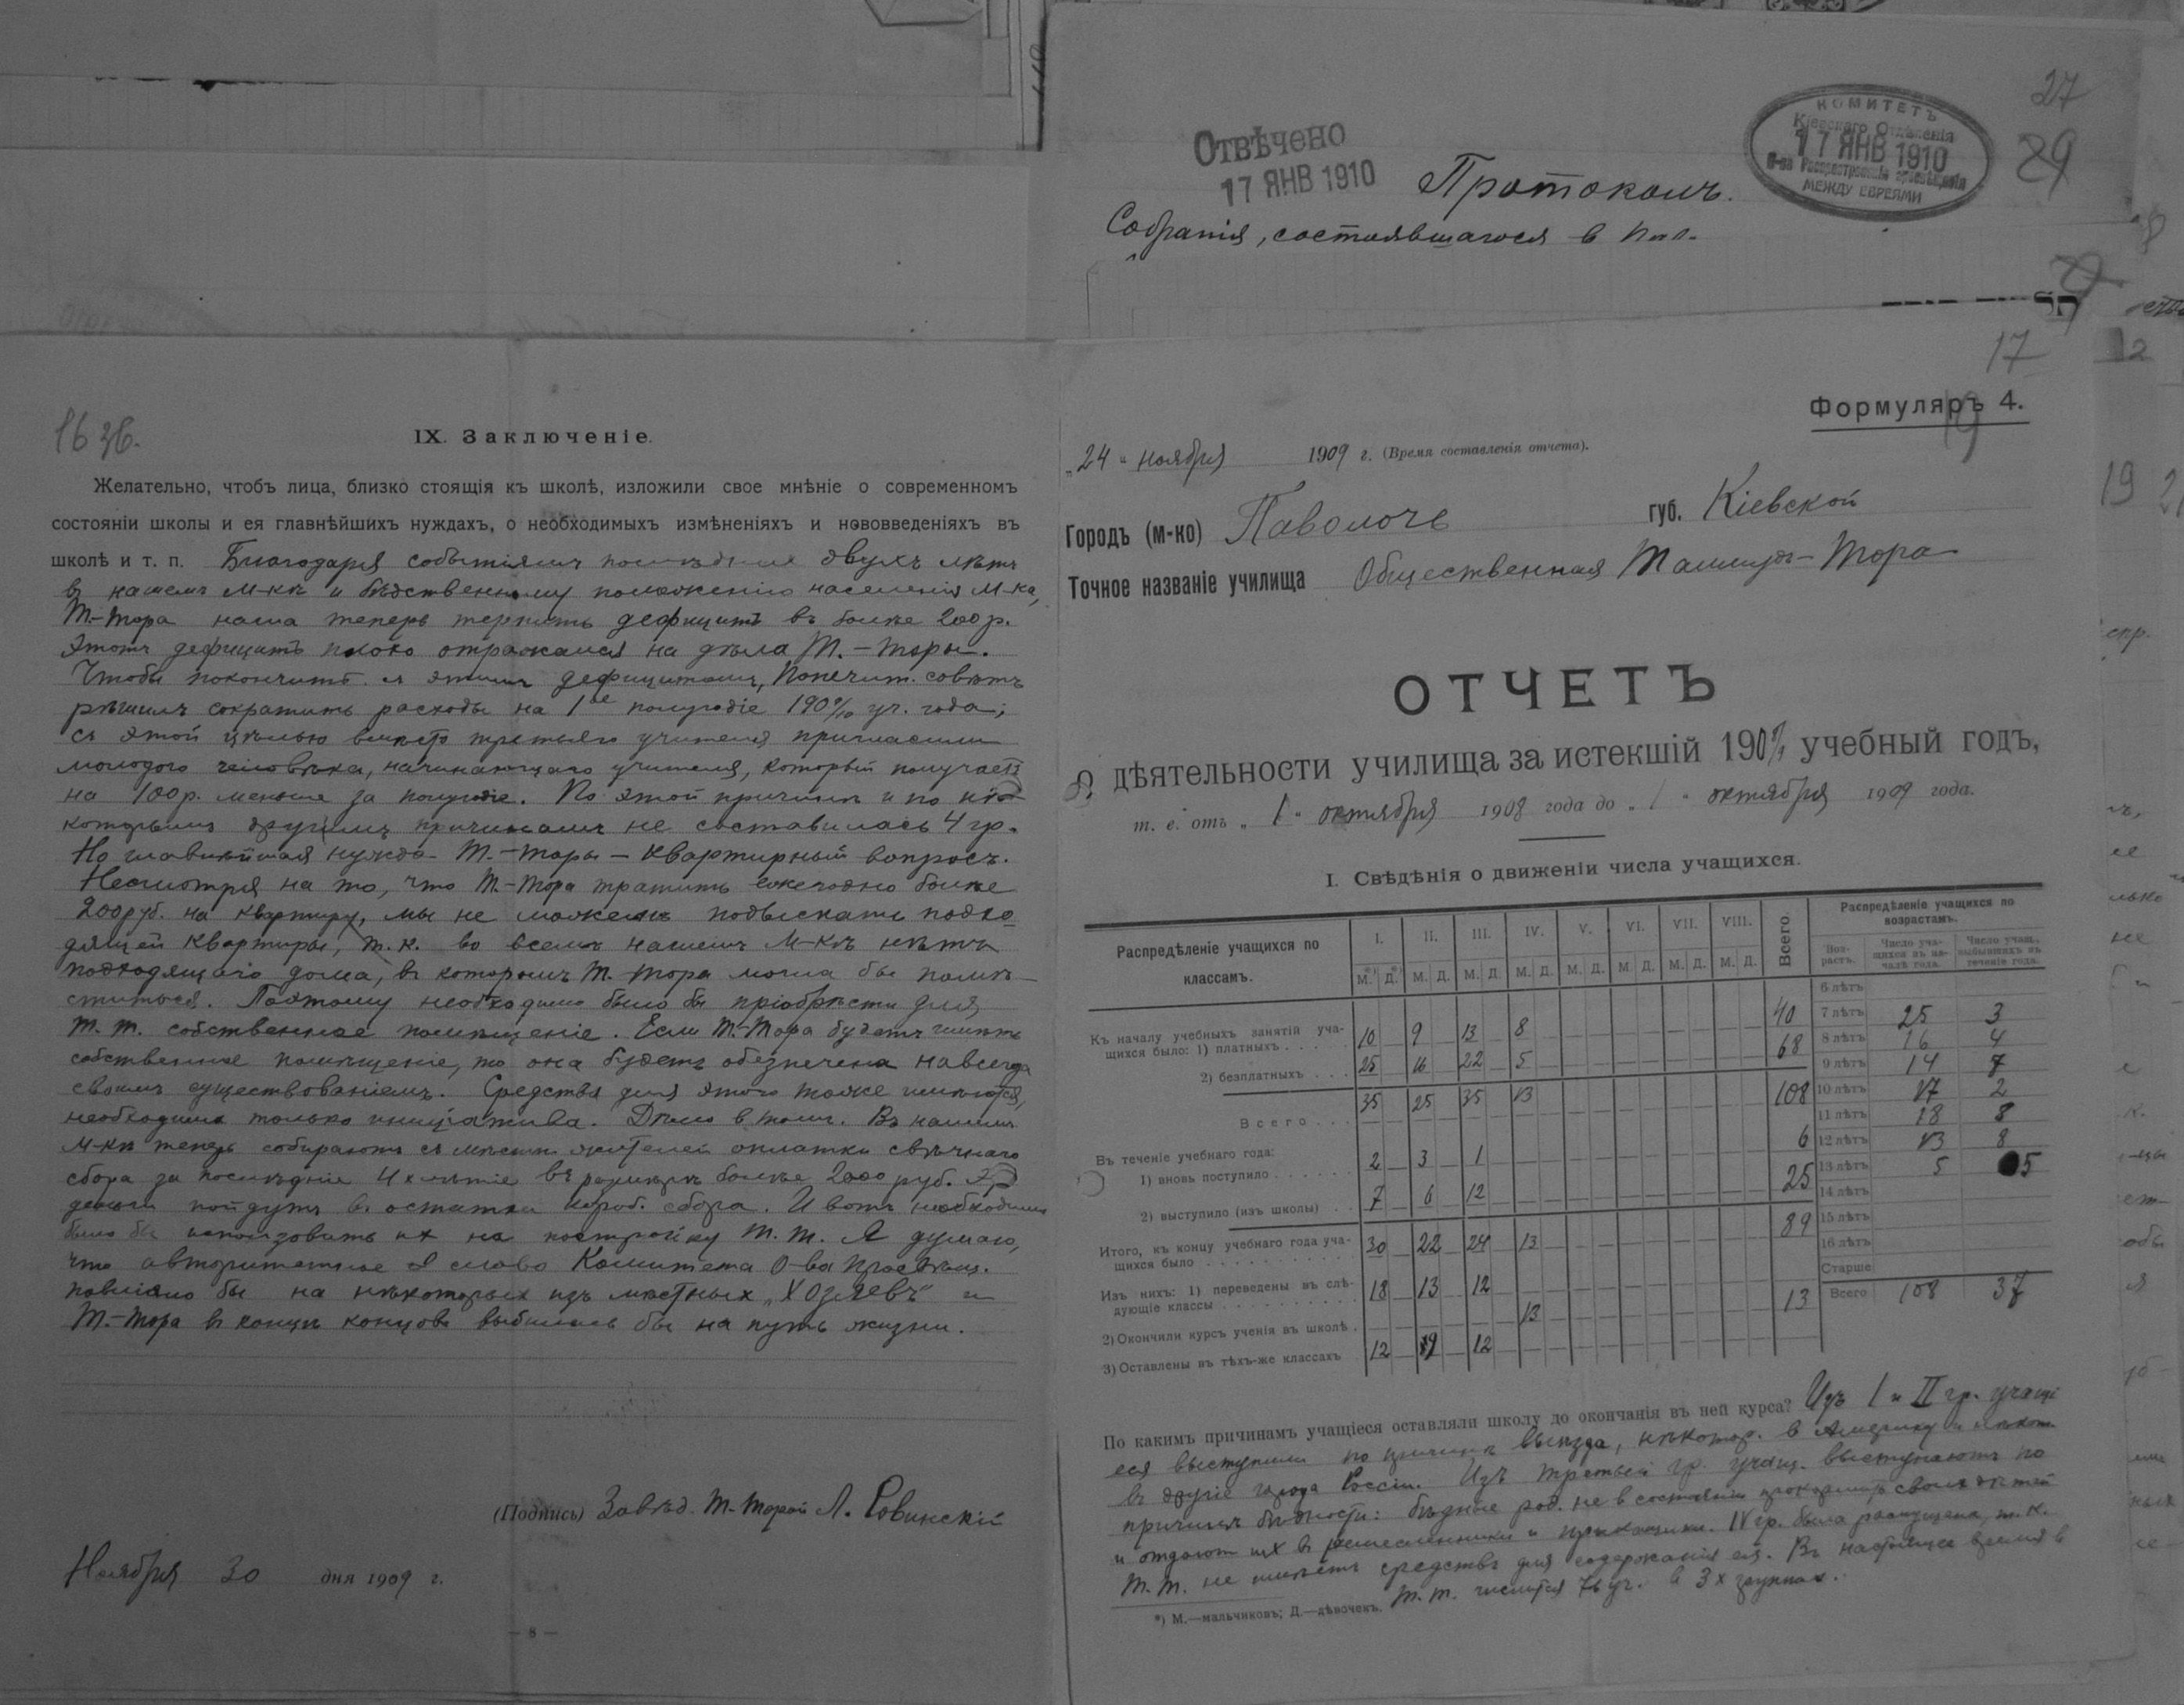 16 об.
IX. Заключеніе.
Желательно, чтобъ лица, близко стоящія къ школѣ, изложили свое мнѣніе о современномъ
состояніи школы и ея главнѣйшихъ нуждахъ, о необходимыхъ измѣненіяхъ и нововведеніяхъ въ
школѣ и т. п. Благодаря событіямъ послѣднихъ двухъ лѣтъ
въ нашемъ м-кѣ и бѣдственному положенію населенія м-ка,
Т.-Тора наша теперь терпитъ дефицитъ въ болѣе 200 р.
Этотъ дефицитъ плохо отражался на дѣла Т.-Торы.
Чтобы покончить съ этимъ дефицитомъ, Попечит. совѣтъ
рѣшилъ сократить расходы на 1ое полугодіе 1909/10 уч. года;
съ этой цѣлью вмѣсто третьяго учителя пригласили
молодого человѣка, начинающаго учителя, который получаетъ
на 100 р. меньше за полугодіе. По этой причинѣ и по нѣ-
которымъ другимъ причинамъ не составилась 4 гр.
Но главнѣйшая нужда Т.-Торы — квартирный вопросъ.
Несмотря на то, что Т.-Тора тратитъ ежегодно болѣе
200 руб. на квартиру, мы не можемъ подыскать подхо-
дящей квартиры, т. к. во всемъ нашемъ м-кѣ нѣтъ
подходящаго дома, въ которомъ Т.-Тора могла бы помѣ-
ститься. Поэтому необходимо было бы пріобрѣсти для
Т. Т. собственное помѣщеніе. Если Т.-Тора будетъ имѣть
собственное помѣщеніе, то она будетъ обезпечена навсегда
своимъ существованіемъ. Средства для этого тоже имѣются,
необходима только иниціатива. Дѣло в томъ. Въ нашемъ
м-кѣ теперь собираютъ съ мѣстн. жителей оплатки свѣчнаго
сбора за послѣдніе 4х-лѣтіе въ размѣрѣ болѣе 2000 руб. Эти
деньги пойдутъ въ остатки короб. сбора. И вотъ необходимо
было бы использовать их на постройку Т. Т. Я думаю,
что авторитетное слово Комитета О-ва Просвѣщ.
повліяло бы на нѣкоторыхъ изъ мѣстныхъ „Хозяевъ" и
Т.-Тора въ концѣ концовъ выбилась бы на путь жизни.
(Подпись) Завѣд. Т-Торой Л. Ровинскій
Ноября 30 дня 1909 г.
— 8 —
Отвѣчено
17 ЯНВ 1910
КОМИТЕТЪ
Кіевскаго Отдѣленія
17 ЯНВ 1910
О-ва Распространенія просвѣщенія
МЕЖДУ ЕВРЕЯМИ
27
29
Протоколъ.
Собранія, состоявшагося в Пав.
17
19
Формуляръ 4.
„24" ноября 1909 г. (Время составленія отчета).
Городъ (м-ко) Паволочь губ. Кіевской
Точное названіе училища Общественная Талмудъ-Тора
ОТЧЕТЪ
О дѣятельности училища за истекшій 1908/9 учебный годъ,
т. е. отъ „1" октября 1908 года до „1" октября 1909 года.
I. Свѣдѣнія о движеніи числа учащихся.
Распредѣленіе учащихся по классамъ. I. II. III. IV. V. VI. VII. VIII. Всего.
М.*) Д.*) М. Д. М. Д. М. Д. М. Д. М. Д. М. Д. М. Д.
Къ началу учебныхъ занятій уча-
щихся было: 1) платныхъ 10 9 13 8 40
2) безплатныхъ 25 16 22 5 68
Всего 35 25 35 13 108
Въ теченіе учебнаго года:
1) вновь поступило 2 3 1 6
2) выступило (изъ школы) 7 6 12 25
Итого, къ концу учебнаго года уча-
щихся было 30 22 24 13 89
Изъ нихъ: 1) переведены въ слѣ-
дующіе классы 18 13 12
2) Окончили курсъ ученія въ школѣ 13 13
3) Оставлены въ тѣхъ-же классахъ 12 9 12
Распредѣленіе учащихся по возрастамъ.
Воз-растъ. Число уча-щихся въ на-чалѣ года. Число учащ. выбывшихъ въ теченіе года.
6 лѣтъ
7 лѣтъ 25 3
8 лѣтъ 16 4
9 лѣтъ 14 7
10 лѣтъ 17 2
11 лѣтъ 18 8
12 лѣтъ 13 8
13 лѣтъ 5 5
14 лѣтъ
15 лѣтъ
16 лѣтъ
Старше
Всего 108 37
По какимъ причинамъ учащіеся оставляли школу до окончанія въ ней курса? Изъ I и II гр. учащі
еся выступили по причинѣ выѣзда, нѣкотор. в Америку и нѣкот.
въ другіе города Россіи. Изъ третьей гр. учащ. выступаютъ по
причинѣ бѣдности: бѣдные род. не в состояніи прокормить своихъ дѣтей
и отдают их в ремесленники и приказчики. IV гр. была распущена, т. к.
Т. Т. не имѣетъ средствъ для содержанія ея. Въ настоящее время в
Т. Т. числится 76 уч. в 3х группах.
*) М.—мальчиковъ; Д.—дѣвочекъ.